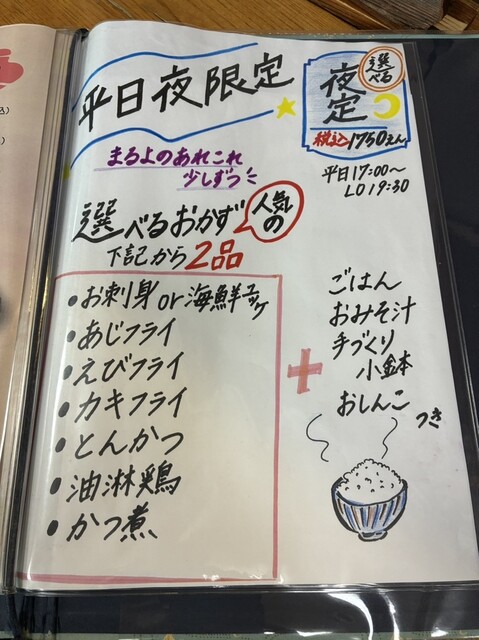 平日夜限定
選べる
夜定
税込1750えん
平日17:00～
LO 19:30
まるよのあれこれ
少しずつ
選べるおかず
人気の
下記から2品
・お刺身or海鮮ユッケ
・あじフライ
・えびフライ
・カキフライ
・とんかつ
・油淋鶏
・かつ煮
+
ごはん
おみそ汁
手づくり
小鉢
おしんこ
つき